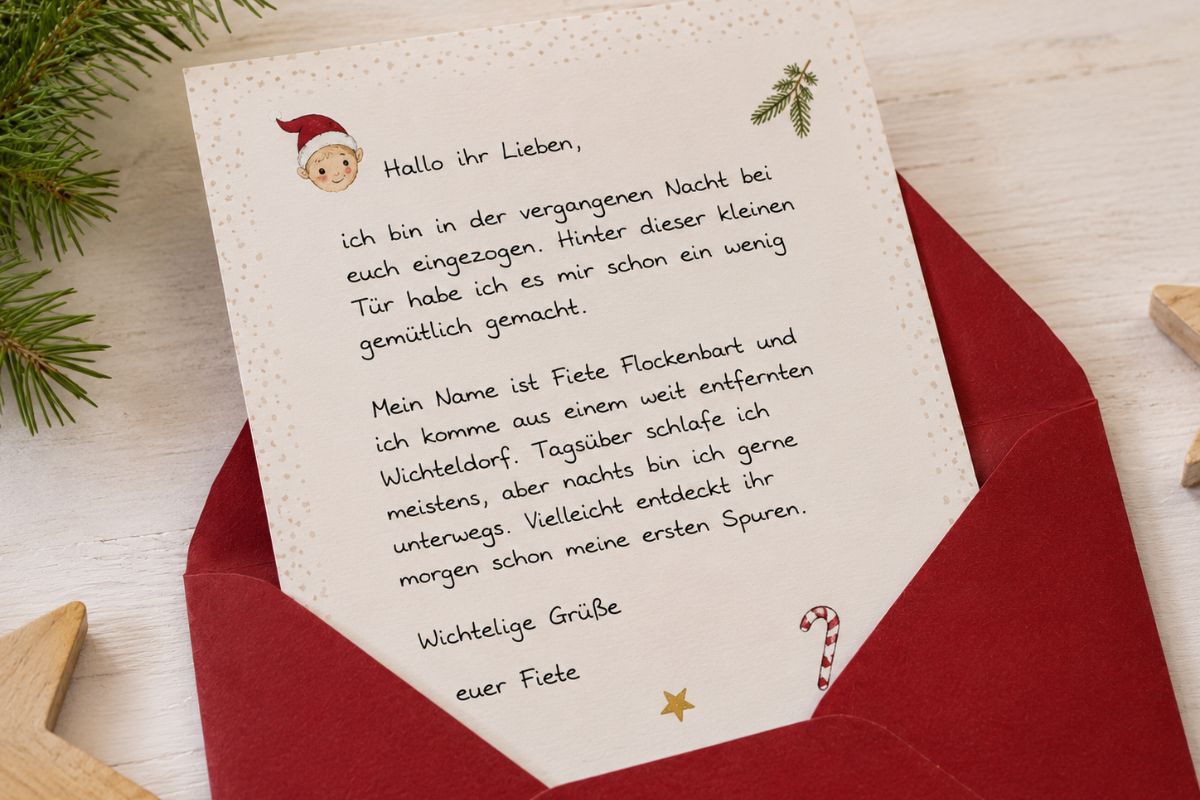 Hallo ihr Lieben,
ich bin in der vergangenen Nacht bei
euch eingezogen. Hinter dieser kleinen
Tür habe ich es mir schon ein wenig
gemütlich gemacht.
Mein Name ist Fiete Flockenbart und
ich komme aus einem weit entfernten
Wichteldorf. Tagsüber schlafe ich
meistens, aber nachts bin ich gerne
unterwegs. Vielleicht entdeckt ihr
morgen schon meine ersten Spuren.
Wichtelige Grüße
euer Fiete